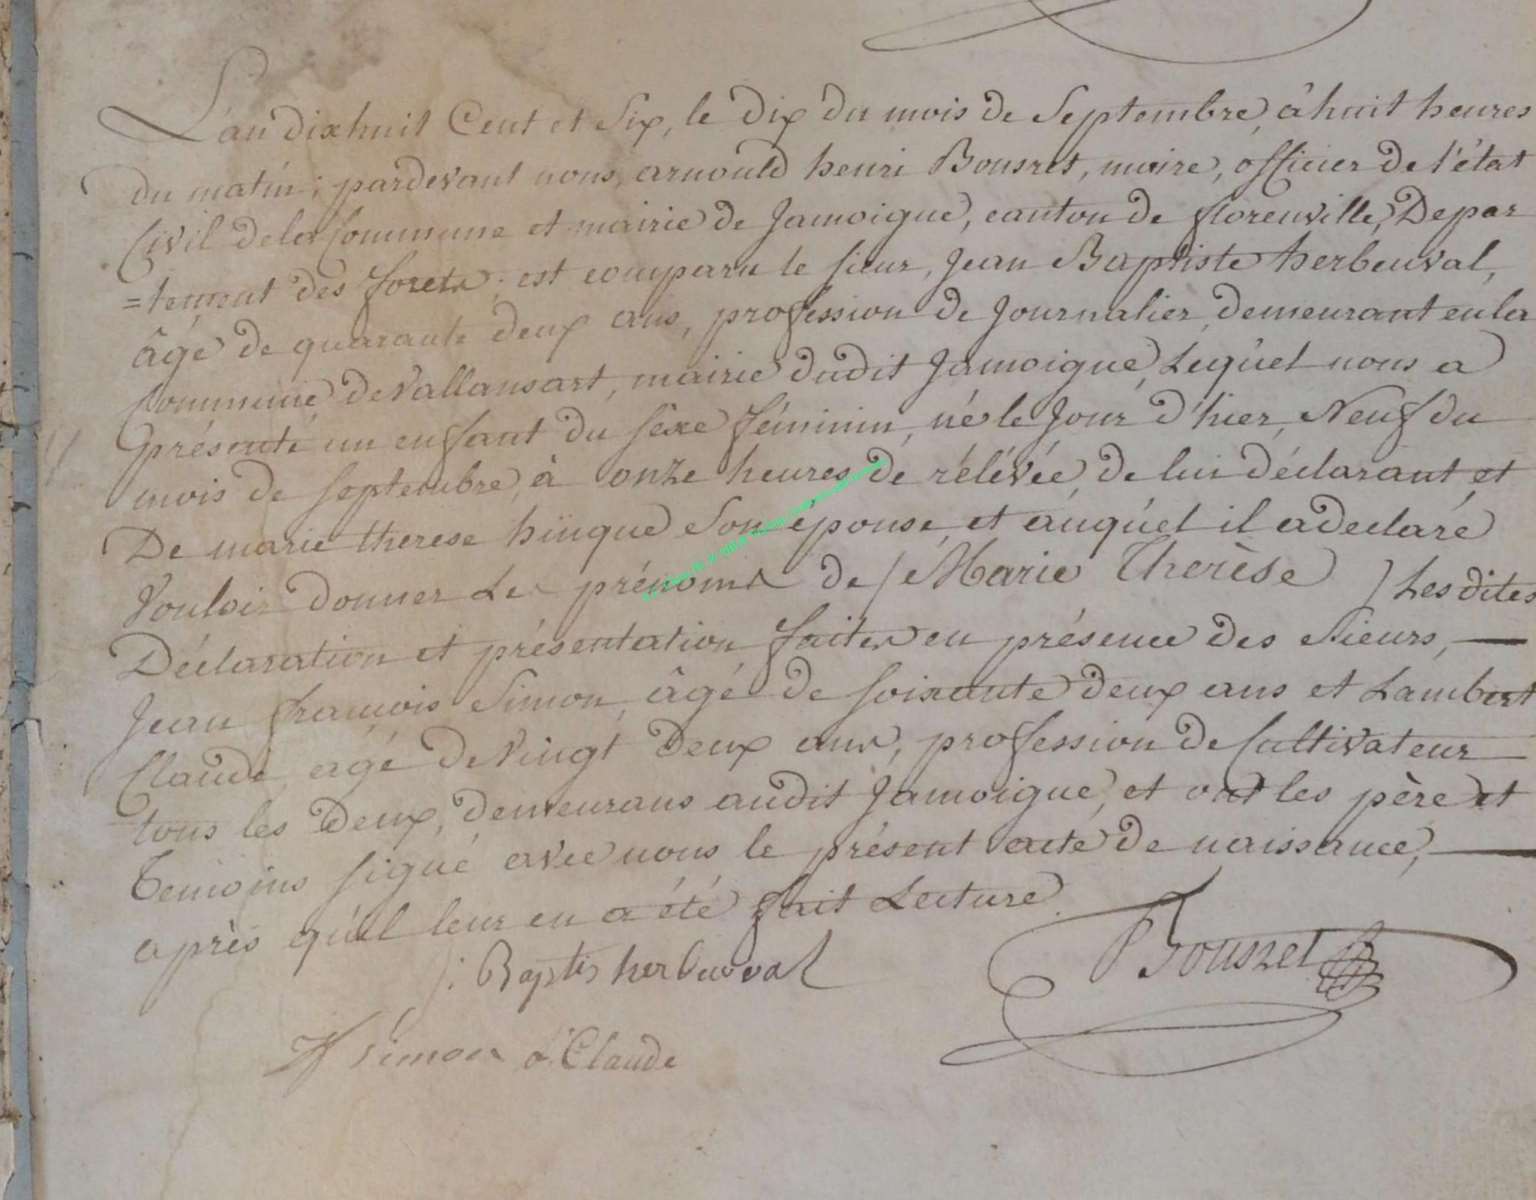 L'an dixhuit Cent et Six, le dix du mois de Septembre, à huit heures
du matin; pardevant nous, arnould henri Bousret, maire, officier de l'état
Civil dela Commune et mairie de Jamoigne, canton de florenville, Depar
=tement des forets; est comparu le sieur, Jean Baptiste herbeuval,
âgé de quarante deux ans, profession de Journalier, demeurant en la
Commune de Vallansart, mairie dudit Jamoigne, Lequel nous a
présenté un enfant du sèxe féminin, né le Jour d'hier, Neuf du
mois de septembre, à onze heures de rélévée, de lui déclarant, et
De marie therese hinque Son épouse, et auquel il a declaré
Vouloir donner Les prénoms de / Marie Therèse / Les dites
Déclaration et présentation faites en présence des Sieurs,
Jean françois Simon, âgé de soixante deux ans et Lambert
Claude, agé de Vingt Deux ans, profession de Cultivateur
tous les Deux, demeurans audit Jamoigne, et ont les père et
Temoins signé avec nous le présent acte de naissance,
après qu'il leur en a été fait Lecture.
j: Baptis herbeuval
Bousret
Jf simon
L Claude